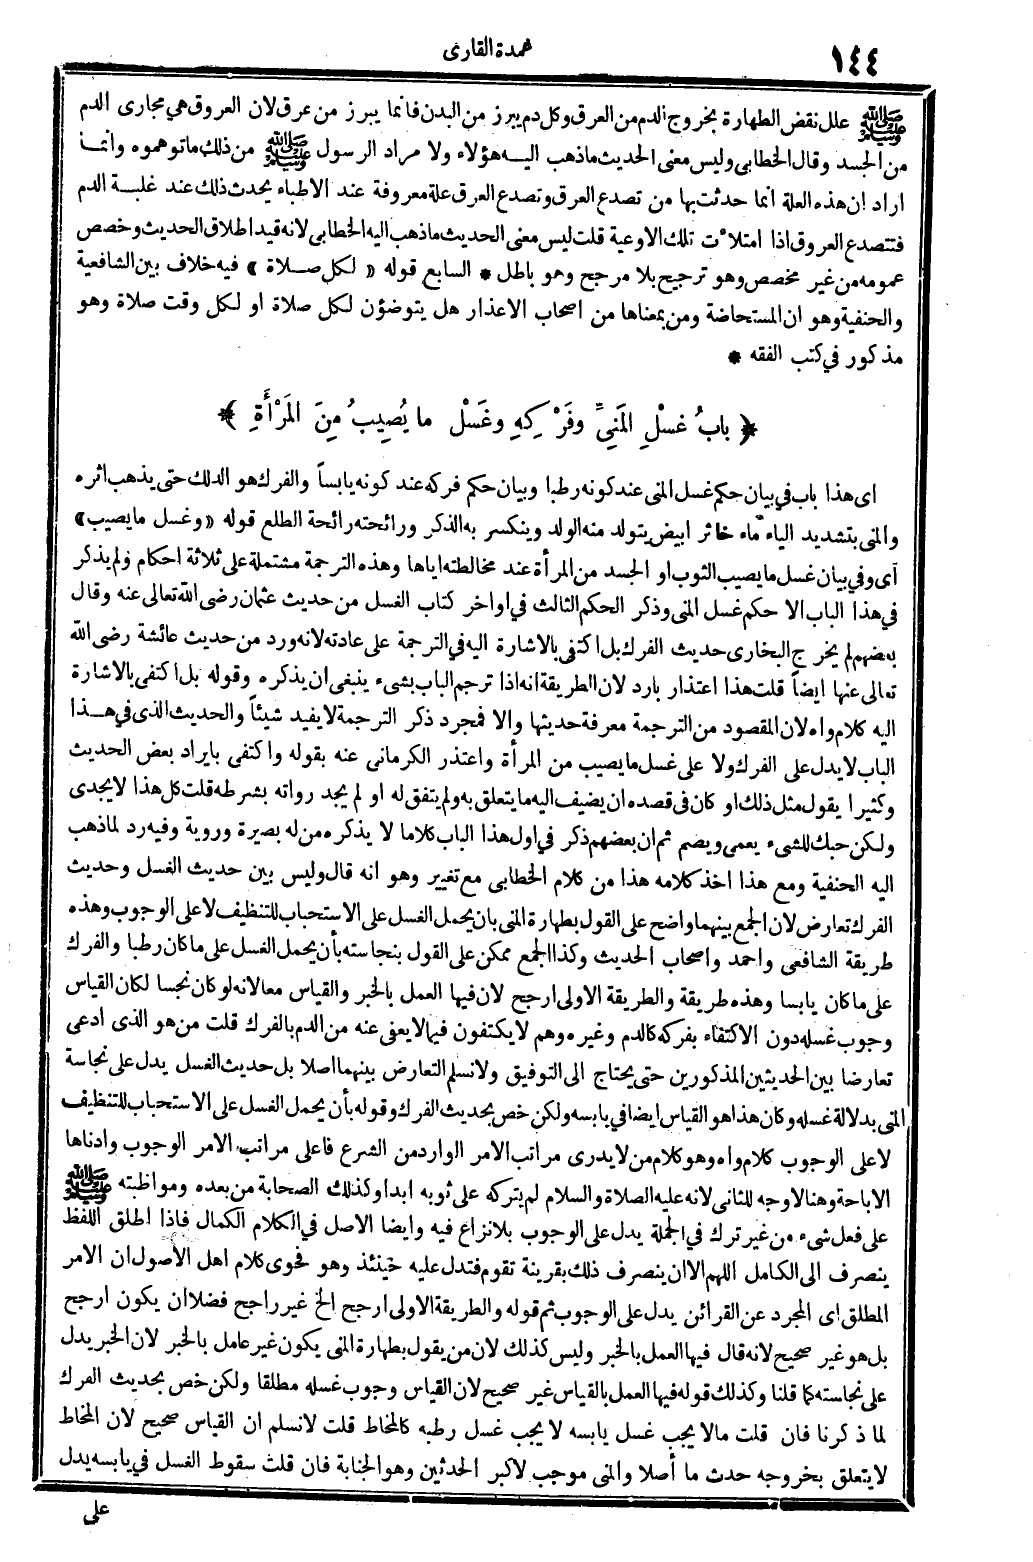 ١٤٤
عمدة القارى
ﷺ علل نقض الطهارة بخروج الدم من العرق وكل دم يبرز من البدن فانما يبرز من عرق لان العروق هي مجارى الدم
من الجسد وقال الخطابي وليس معنى الحديث ما ذهب اليه هؤلاء ولا مراد الرسول ﷺ من ذلك ما توهموه وانما
اراد ان هذه العلة انما حدثت بها من تصدع العرق وتصدع العرق علة معروفة عند الاطباء يحدث ذلك عند غلبة الدم
فتتصدع العروق اذا امتلأت تلك الاوعية قلت ليس معنى الحديث ما ذهب اليه الخطابي لانه قيد اطلاق الحديث وخصص
عمومه من غير مخصص وهو ترجيح بلا مرجح وهو باطل * السابع قوله « لكل صلاة » فيه خلاف بين الشافعية
والحنفية وهو ان المستحاضة ومن بمعناها من اصحاب الاعذار هل يتوضؤن لكل صلاة او لكل وقت صلاة وهو
مذكور في كتب الفقه *
﴿ بابُ غَسْلِ المَنِيِّ وفَرْكِهِ وغَسْلِ ما يُصِيبُ مِنَ المَرْأَةِ ﴾
اى هذا باب في بيان حكم غسل المنى عند كونه رطبا وبيان حكم فركه عند كونه يابساً والفرك هو الدلك حتى يذهب اثره
والمنى بتشديد الياء ماء خاثر ابيض يتولد منه الولد وينكسر به الذكر ورائحته رائحة الطلع قوله «وغسل ما يصيب»
أى وفي بيان غسل ما يصيب الثوب او الجسد من المرأة عند مخالطته اياها وهذه الترجمة مشتملة على ثلاثة احكام ولم يذكر
في هذا الباب الا حكم غسل المنى وذكر الحكم الثالث في اواخر كتاب الغسل من حديث عثمان رضى الله تعالى عنه وقال
بعضهم لم يخرج البخارى حديث الفرك بل اكتفى بالاشارة اليه في الترجمة على عادته لانه ورد من حديث عائشة رضى الله
تعالى عنها ايضاً قلت هذا اعتذار بارد لان الطريقة انه اذا ترجم الباب بشىء ينبغى ان يذكره وقوله بل اكتفى بالاشارة
اليه كلام واه لان المقصود من الترجمة معرفة حديثها والا فمجرد ذكر الترجمة لا يفيد شيئاً والحديث الذى في هذا
الباب لا يدل على الفرك ولا على غسل ما يصيب من المرأة واعتذر الكرمانى عنه بقوله واكتفى بايراد بعض الحديث
وكثيرا يقول مثل ذلك او كان فى قصده ان يضيف اليه ما يتعلق به ولم يتفق له او لم يجد رواته بشرطه قلت كل هذا لا يجدى
ولكن حبك للشىء يعمى ويصم ثم ان بعضهم ذكر في اول هذا الباب كلاما لا يذكره من له بصيرة وروية وفيه رد لما ذهب
اليه الحنفية ومع هذا اخذ كلامه هذا من كلام الخطابى مع تغيير وهو انه قال وليس بين حديث الغسل وحديث
الفرك تعارض لان الجمع بينهما واضح على القول بطهارة المنى بان يحمل الغسل على الاستحباب للتنظيف لا على الوجوب وهذه
طريقة الشافعى واحمد واصحاب الحديث وكذا الجمع ممكن على القول بنجاسته بأن يحمل الغسل على ما كان رطبا والفرك
على ما كان يابسا وهذه طريقة والطريقة الاولى ارجح لان فيها العمل بالخبر والقياس معا لانه لو كان نجسا لكان القياس
وجوب غسله دون الاكتفاء بفركه كالدم وغيره وهم لا يكتفون فيما لا يعفى عنه من الدم بالفرك قلت من هو الذى ادعى
تعارضا بين الحديثين المذكورين حتى يحتاج الى التوفيق ولا نسلم التعارض بينهما اصلا بل حديث الغسل يدل على نجاسة
المنى بدلالة غسله وكان هذا هو القياس ايضا في يابسه ولكن خص بحديث الفرك وقوله بأن يحمل الغسل على الاستحباب للتنظيف
لا على الوجوب كلام واه وهو كلام من لا يدرى مراتب الامر الوارد من الشرع فاعلى مراتب الامر الوجوب وادناها
الاباحة وهنا لا وجه للثانى لانه عليه الصلاة والسلام لم يتركه على ثوبه ابدا وكذلك الصحابة من بعده ومواظبته ﷺ
على فعل شىء من غير ترك في الجملة يدل على الوجوب بلا نزاع فيه وايضا الاصل في الكلام الكمال فاذا اطلق اللفظ
ينصرف الى الكامل اللهم الا ان ينصرف ذلك بقرينة تقوم فتدل عليه حينئذ وهو فحوى كلام اهل الأصول ان الامر
المطلق اى المجرد عن القرائن يدل على الوجوب ثم قوله والطريقة الاولى ارجح الخ غير راجح فضلا ان يكون ارجح
بل هو غير صحيح لانه قال فيها العمل بالخبر وليس كذلك لان من يقول بطهارة المنى يكون غير عامل بالخبر لان الخبر يدل
على نجاسته كما قلنا وكذلك قوله فيها العمل بالقياس غير صحيح لان القياس وجوب غسله مطلقا ولكن خص بحديث الفرك
لما ذكرنا فان قلت مالا يجب غسل يابسه لا يجب غسل رطبه كالمخاط قلت لا نسلم ان القياس صحيح لان المخاط
لا يتعلق بخروجه حدث ما أصلا والمنى موجب لاكبر الحدثين وهو الجنابة فان قلت سقوط الغسل في يابسه يدل
على